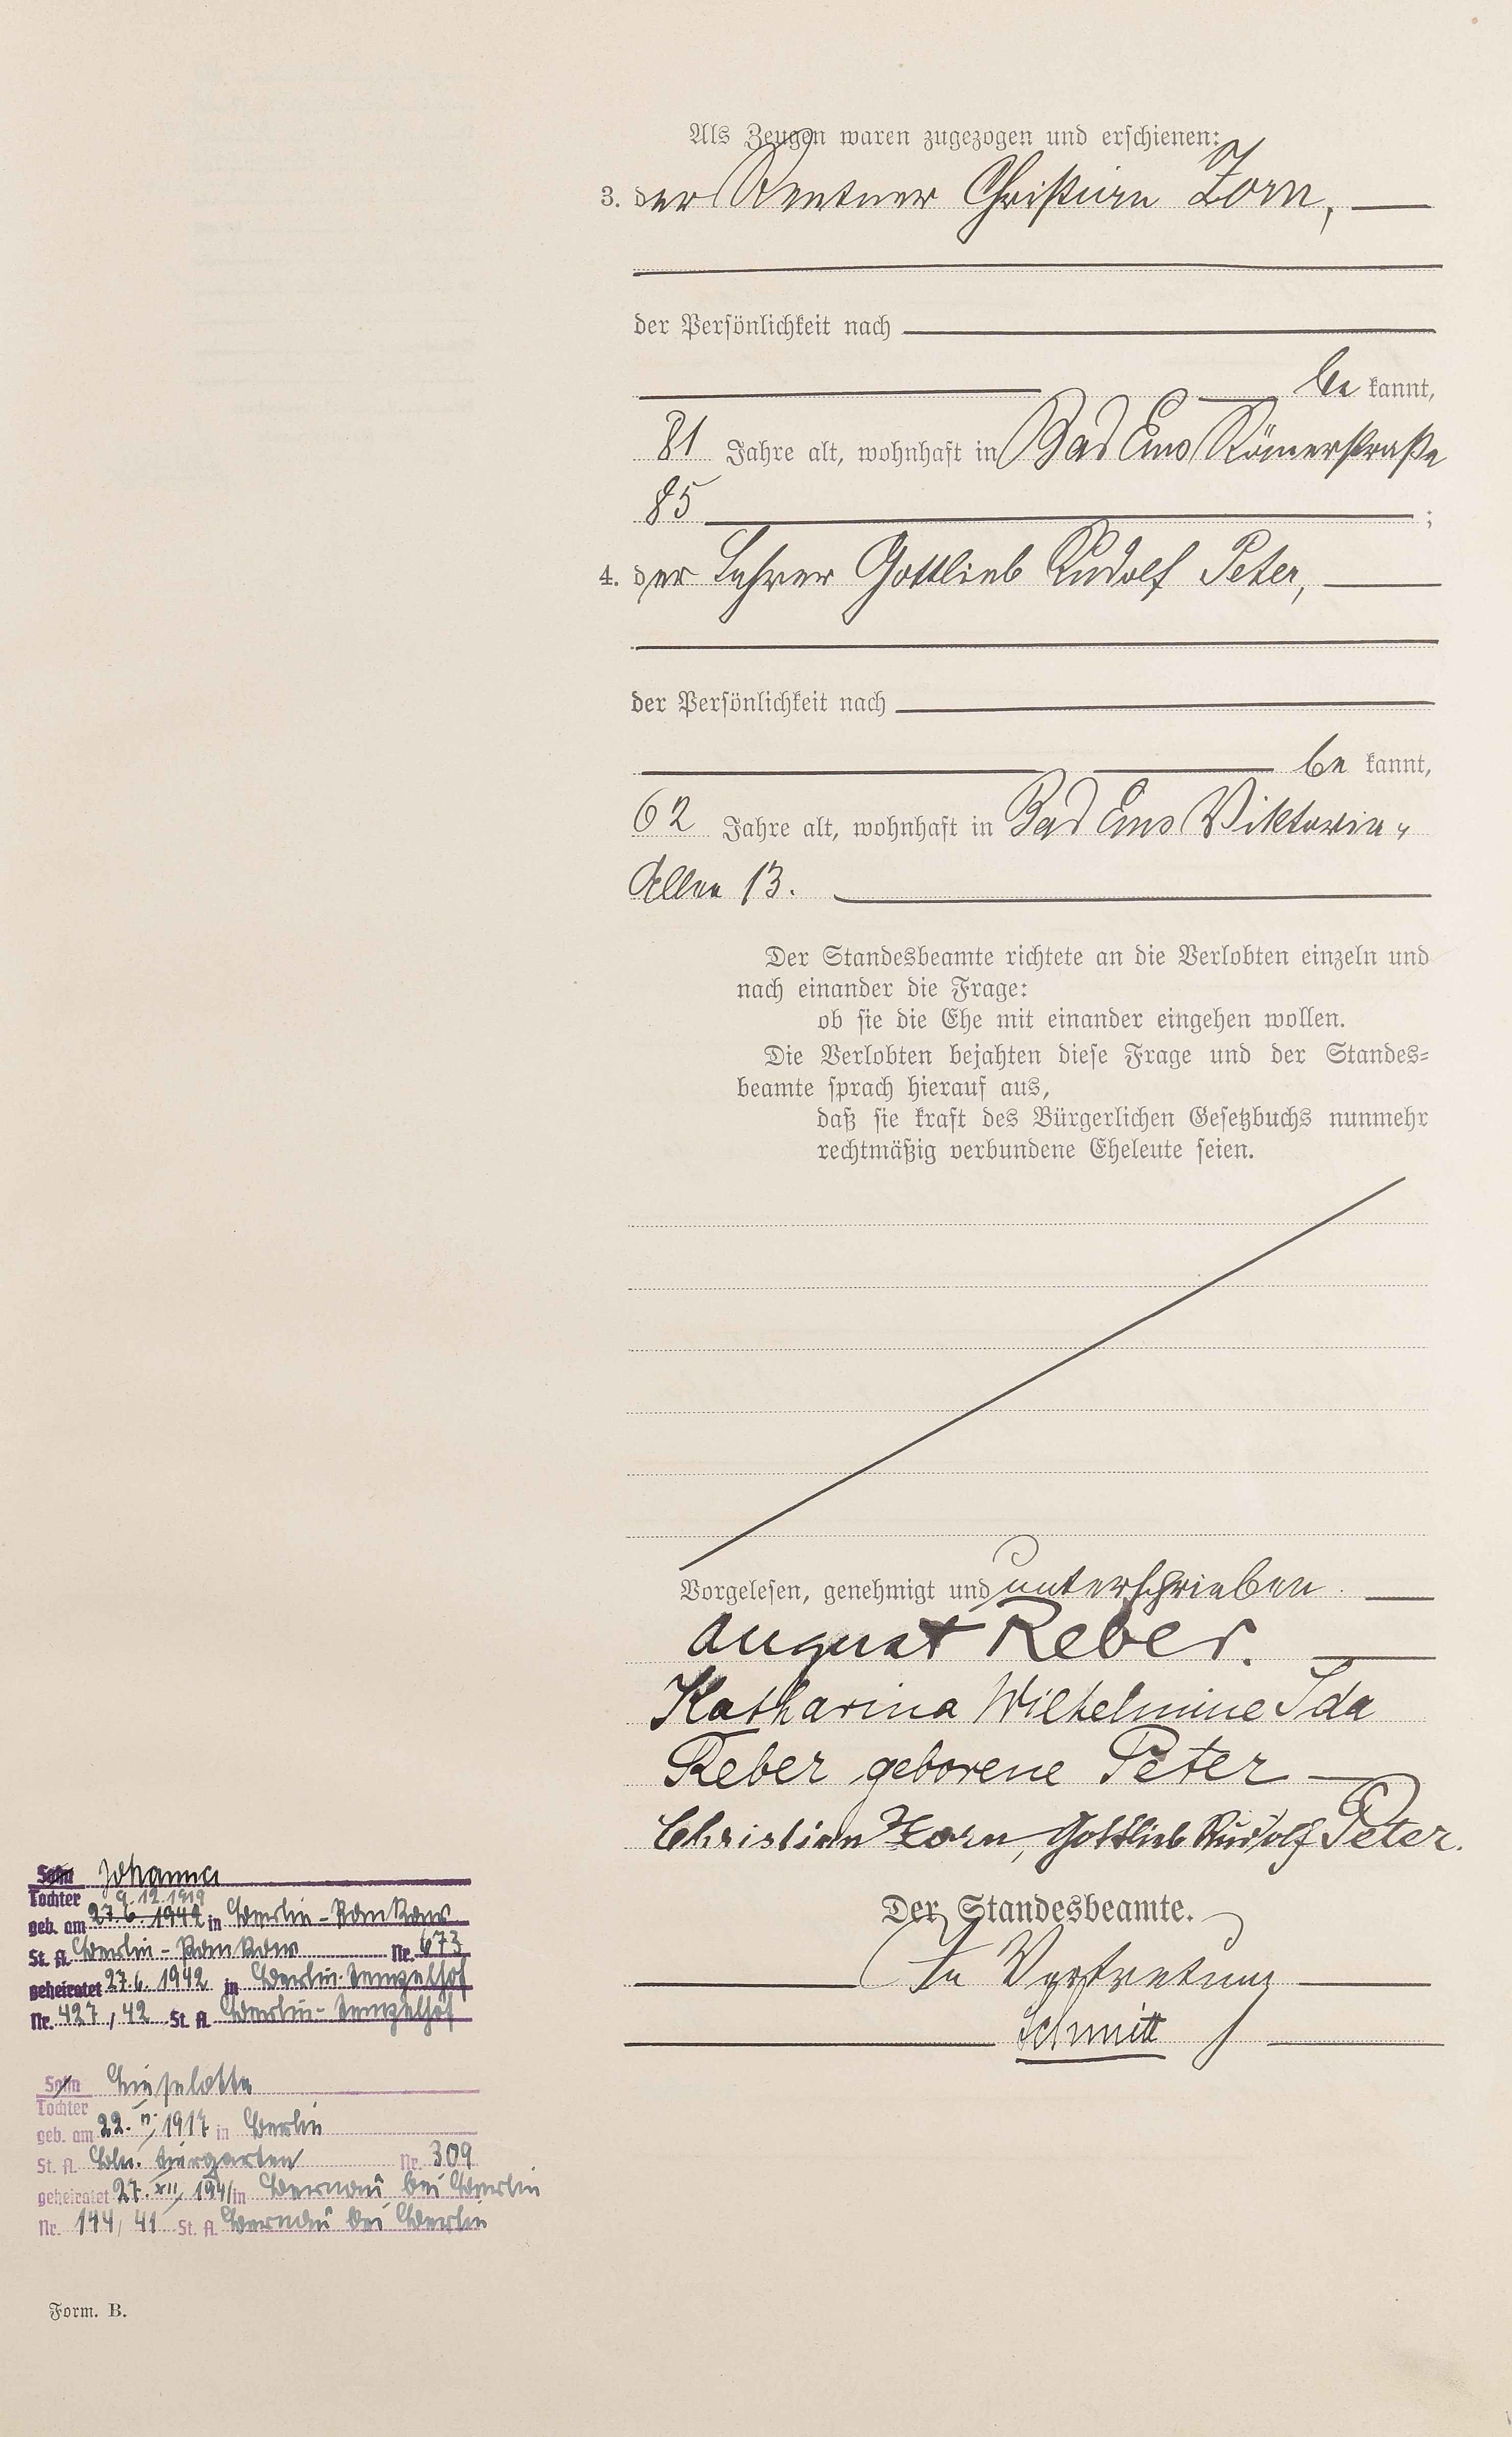 Als Zeugen waren zugezogen und erschienen:
3. der Rentner Christian Zorn,
der Persönlichkeit nach
be kannt,
81 Jahre alt, wohnhaft in Bad Ems Römerstraße
85 ;
4. der Lehrer Gottlieb Rudolf Peter,
der Persönlichkeit nach
be kannt,
62 Jahre alt, wohnhaft in Bad Ems Viktoria-
Allee 13.
Der Standesbeamte richtete an die Verlobten einzeln und
nach einander die Frage:
ob sie die Ehe mit einander eingehen wollen.
Die Verlobten bejahten diese Frage und der Standes-
beamte sprach hierauf aus,
daß sie kraft des Bürgerlichen Gesetzbuchs nunmehr
rechtmäßig verbundene Eheleute seien.
Vorgelesen, genehmigt und unterschrieben.
August Reber.
Katharina Wilhelmine Ida
Reber geborene Peter
Christian Zorn, Gottlieb Rudolf Peter.
Der Standesbeamte.
In Vertretung
Schmitt
Sohn Johanna
Tochter 9.12.1919
geb. am 27.6.1942 in Berlin-Pankow
St. A. Berlin-Pankow Nr. 673
geheiratet 27.6.1942 in Berlin-Tempelhof
Nr. 427/42 St. A. Berlin-Tempelhof
Sohn Lieselotte
Tochter
geb. am 22. IV. 1917 in Berlin
St. A. Bln. Tiergarten Nr. 309
geheiratet 27. XII. 1941 in Bernau bei Berlin
Nr. 144/41 St. A. Bernau bei Berlin
Form. B.